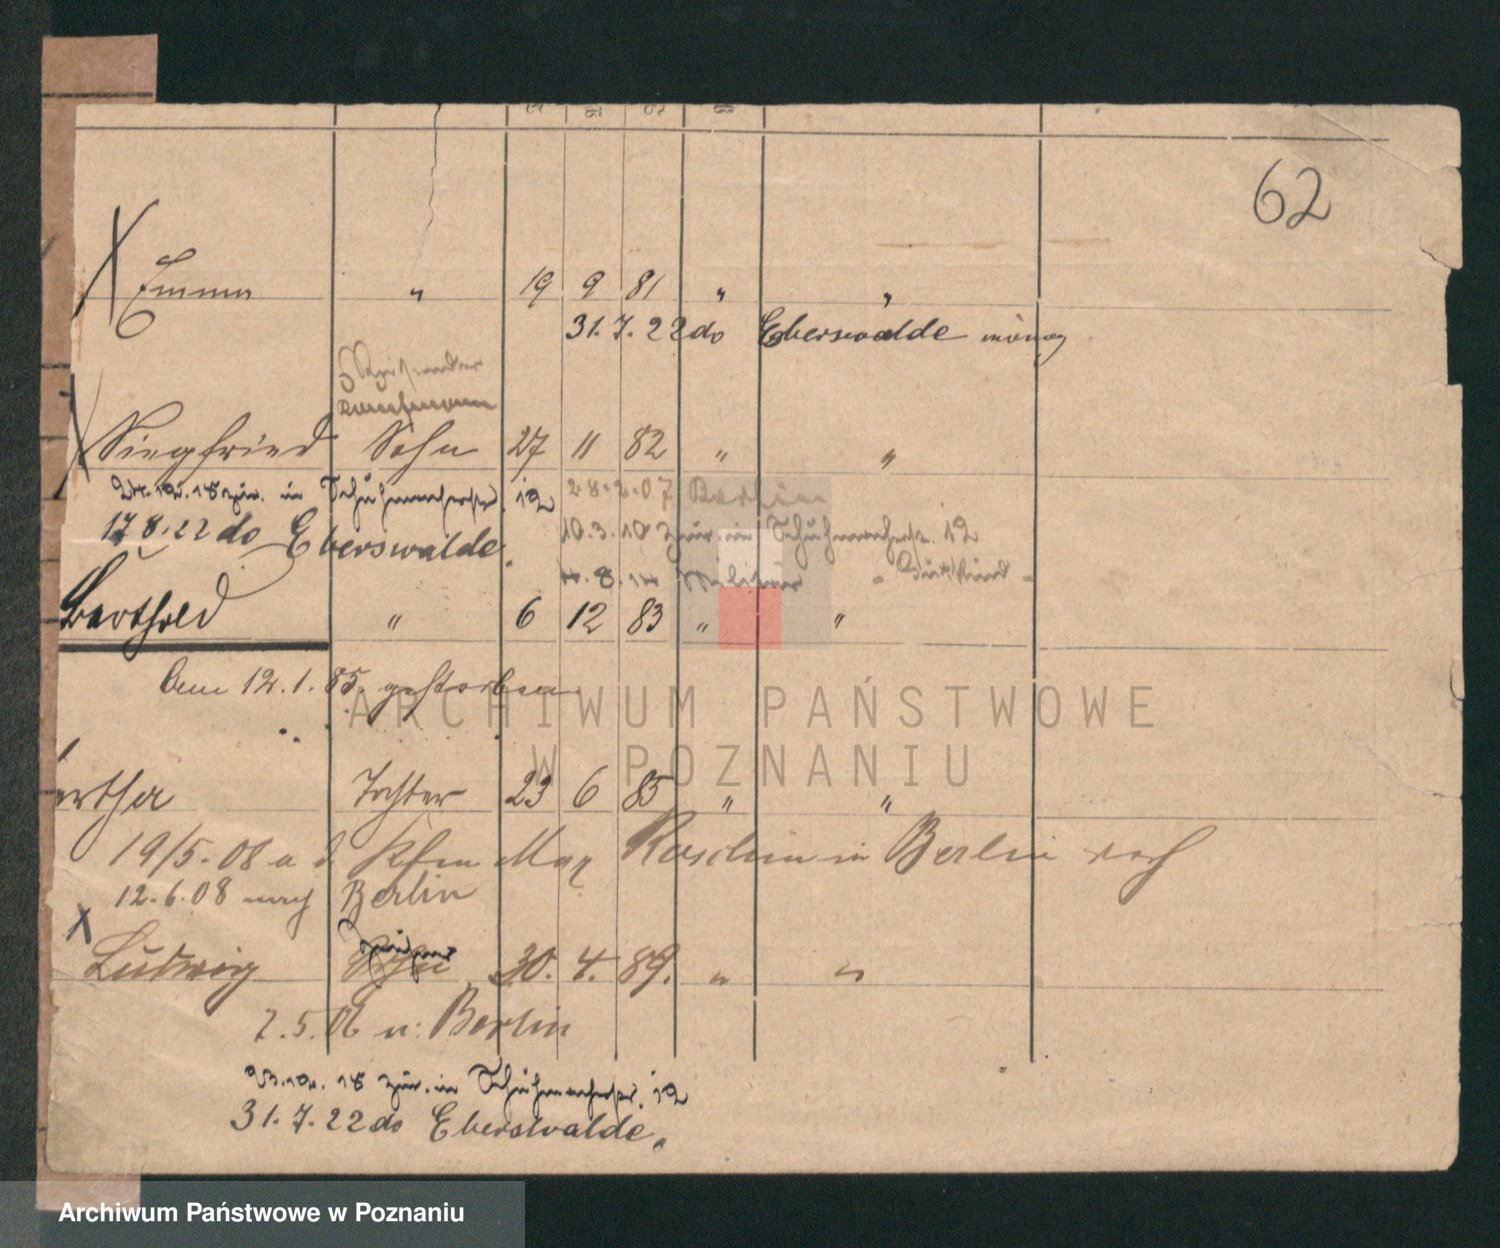 62
Emma " 19 9 81 " "
31. 7. 22 do Eberswalde
Kaufmann
Siegfried Sohn 27 11 82 " "
24.12.18 zur. in Schuhmacherstr. 12 28.2.07 Berlin
17.8.22 do Eberswalde. 10.3.10 zur. in Schuhmacherstr. 12
4.8.14 Militär
Berthold " 6 12 83 " "
Am 12.1.85. gestorben
ARCHIWUM PAŃSTWOWE
W POZNANIU
ertha Tochter 23 6 85 " "
19/5.08 a d Kfm Max in Berlin
12.6.08 nach Berlin
Ludwig Sohn 30. 4. 89. " "
2.5.06 n: Berlin
23.12.18 zur. in Schuhmacherstr. 12
31.7.22 do Eberswalde.
Archiwum Państwowe w Poznaniu